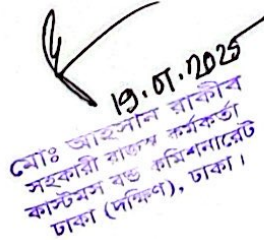 19.01.2025
মোঃ আহসান রাকীব
সহকারী রাজস্ব কর্মকর্তা
কাস্টমস বন্ড কমিশনারেট
ঢাকা (দক্ষিণ), ঢাকা।